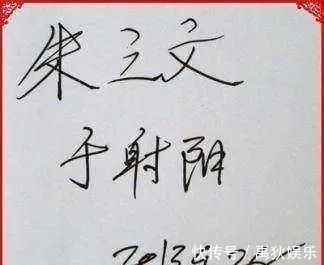 朱之文
于射阳
2013
快传号 / 禹狄娱乐